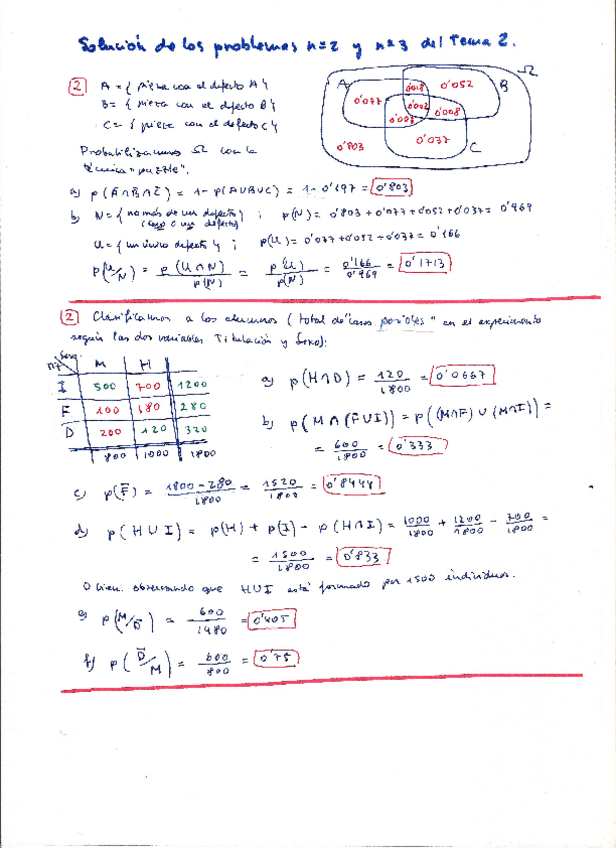 Solución de los problemas n=2 y n=3 del Tema 2.
2 A = { pieza con el defecto A }
B = { pieza con el defecto B }
C = { pieza con el defecto C }
Probabilizamos Ω con la
técnica "puzzle".
Ω
A B C
0'077 0'018 0'052
0'002
0'003 0'008
0'037
0'803
a) p(A̅∩B̅∩C̅) = 1 - p(A∪B∪C) = 1 - 0'197 = 0'803
b) N = { no más de un defecto } ; p(N) = 0'803 + 0'077 + 0'052 + 0'037 = 0'969
(cero o un defecto)
U = { un único defecto } ; p(U) = 0'077 + 0'052 + 0'037 = 0'166
p(U/N) = p(U∩N) / p(N) = p(U) / p(N) = 0'166 / 0'969 = 0'1713
2 Clasificamos a los alumnos (total de "casos posibles" en el experimento
según las dos variables Titulación y Sexo):
Sexo M H
I 500 700 1200
F 100 180 280
D 200 120 320
800 1000 1800
a) p(H∩D) = 120 / 1800 = 0'0667
b) p(M∩(F∪I)) = p((M∩F)∪(M∩I)) =
= 600 / 1800 = 0'333
c) p(F̅) = 1800-280 / 1800 = 1520 / 1800 = 0'8444
d) p(H∪I) = p(H) + p(I) - p(H∩I) = 1000/1800 + 1200/1800 - 700/1800 =
= 1500 / 1800 = 0'833
O bien, observando que H∪I está formado por 1500 individuos.
e) p(M/D̅) = 600 / 1480 = 0'405
f) p(D̅/M) = 600 / 800 = 0'75